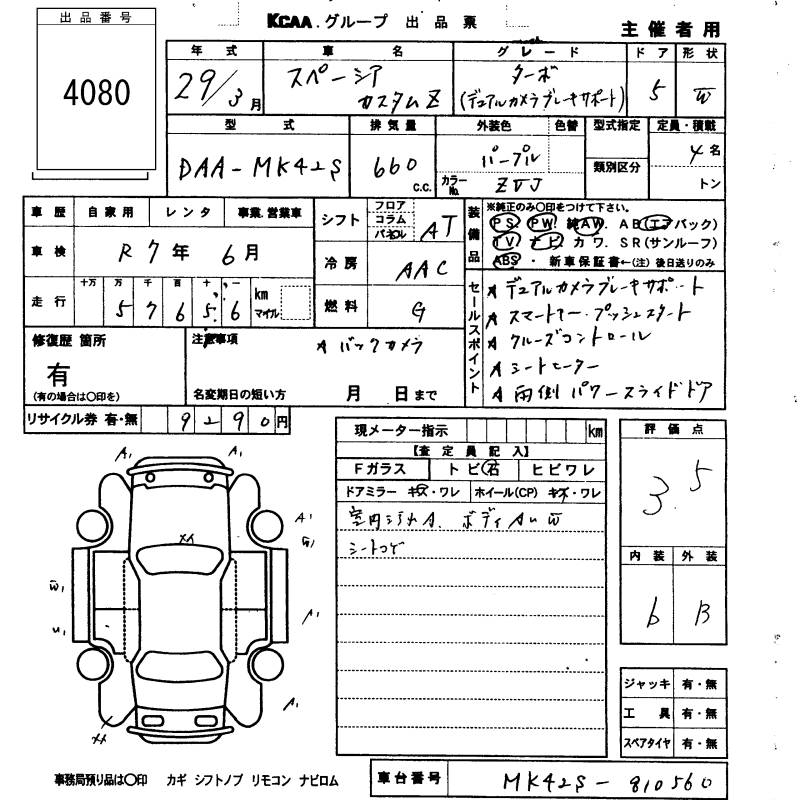 出品番号
4080
KCAA.グループ 出品票
主催者用
年式 車名 グレード ドア 形状
29/3月 スペーシア カスタムZ ターボ (デュアルカメラブレーキサポート) 5 W
型式 排気量 外装色 色替 型式指定 定員・積載
DAA-MK42S 660 c.c. パープル 類別区分 4名
カラーNo. ZVJ トン
車歴 自家用 レンタ 事業.営業車
シフト フロア コラム パネル AT
車検 R7年 6月
冷房 AAC
走行 十万 万 千 百 十 一 km マイル
5 7 6 5 6
燃料 G
装備品 ※純正のみ〇印をつけて下さい。
PS PW 純AW. AB(エアバック)
TV ナビ カワ. SR(サンルーフ)
ABS ・ 新車保証書←(注)後日送りのみ
セールスポイント
デュアルカメラブレーキサポート
スマートキー・プッシュスタート
クルーズコントロール
シートヒーター
両側パワースライドドア
修復歴 箇所
有
(有の場合は〇印を)
注意事項
バックカメラ
名変期日の短い方 月 日まで
リサイクル券 有・無 9290円
現メーター指示 km
【査定員記入】
Fガラス トビ石 ヒビワレ
ドアミラー キズ・ワレ ホイール(CP) キズ・ワレ
室内シヨウA. ボディAuW
シートコゲ
評価点
3.5
内装 外装
b B
A1
A1
A1
G1
XX
W1
U1
A1
A1
XX
ジャッキ 有・無
工具 有・無
スペアタイヤ 有・無
事務局預り品は〇印 カギ シフトノブ リモコン ナビロム
車台番号 MK42S-810560